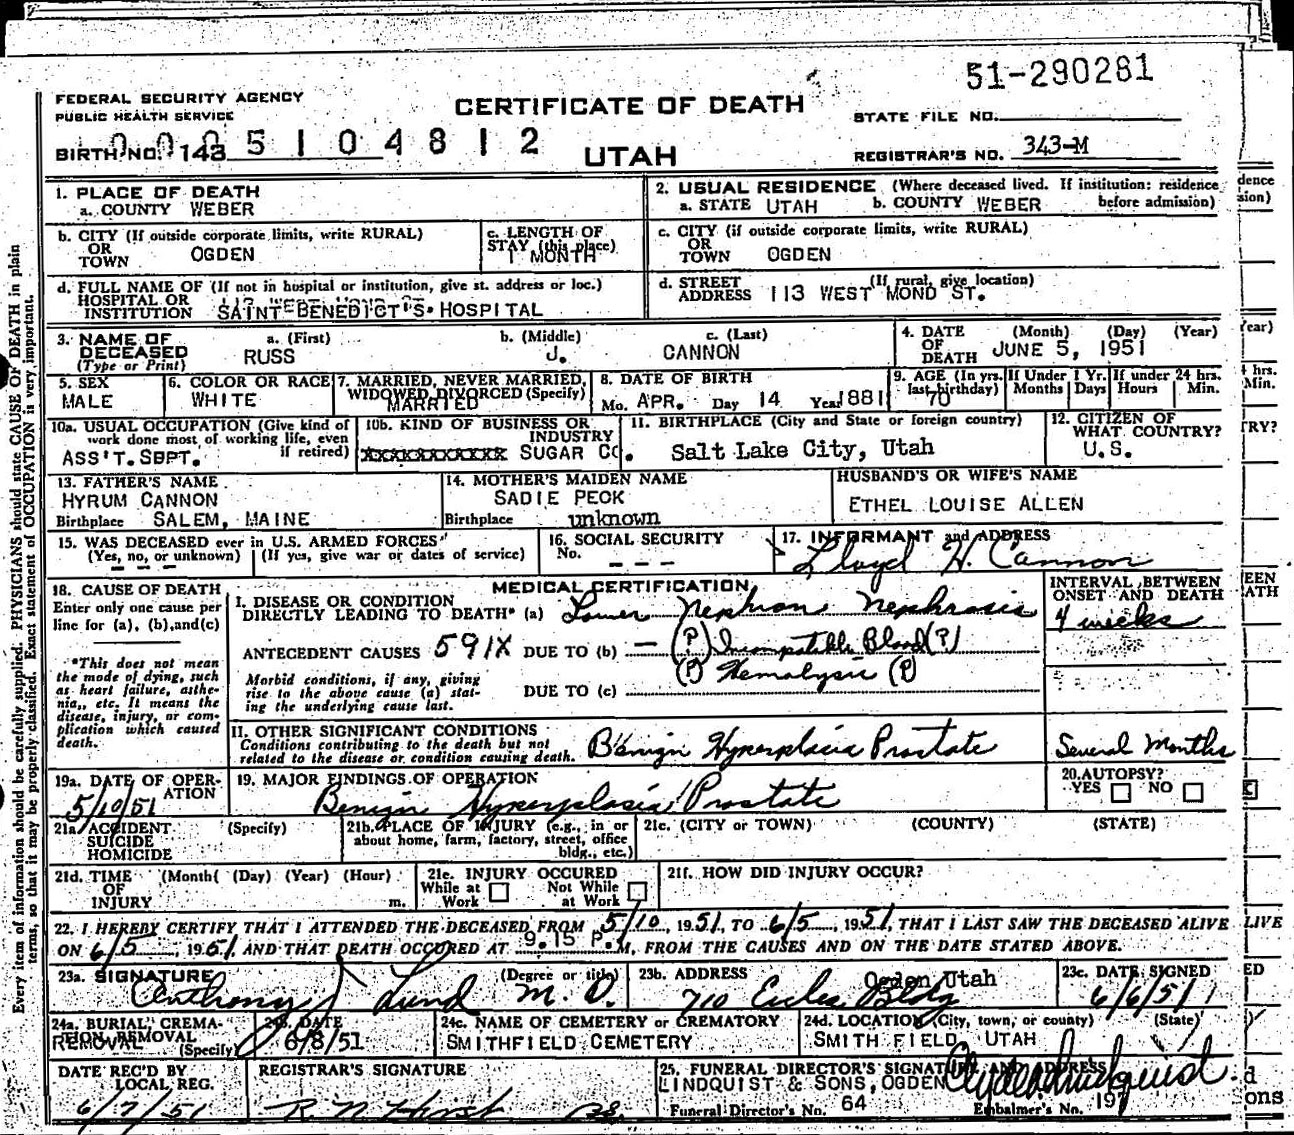 51-290281
FEDERAL SECURITY AGENCY
PUBLIC HEALTH SERVICE
CERTIFICATE OF DEATH
STATE FILE NO.
BIRTH NO. 143 5104812
UTAH
REGISTRAR'S NO. 343-M
1. PLACE OF DEATH
a. COUNTY WEBER
2. USUAL RESIDENCE (Where deceased lived. If institution: residence before admission)
a. STATE UTAH b. COUNTY WEBER
b. CITY (If outside corporate limits, write RURAL)
OR TOWN OGDEN
c. LENGTH OF STAY (this place)
1 MONTH
c. CITY (if outside corporate limits, write RURAL)
OR TOWN OGDEN
d. FULL NAME OF (If not in hospital or institution, give st. address or loc.)
HOSPITAL OR INSTITUTION SAINT BENEDICT'S HOSPITAL
d. STREET ADDRESS (If rural, give location)
113 WEST MOND ST.
3. NAME OF DECEASED (Type or Print)
a. (First) b. (Middle) c. (Last)
RUSS J. CANNON
4. DATE OF DEATH (Month) (Day) (Year)
JUNE 5, 1951
5. SEX
MALE
6. COLOR OR RACE
WHITE
7. MARRIED, NEVER MARRIED, WIDOWED DIVORCED (Specify)
MARRIED
8. DATE OF BIRTH
Mo. APR. Day 14 Year 1881
9. AGE (In yrs. last birthday) If Under 1 Yr. Months Days If under 24 hrs. Hours Min.
70
10a. USUAL OCCUPATION (Give kind of work done most of working life, even if retired)
ASS'T. SBPT.
10b. KIND OF BUSINESS OR INDUSTRY
SUGAR CO.
11. BIRTHPLACE (City and State or foreign country)
Salt Lake City, Utah
12. CITIZEN OF WHAT COUNTRY?
U.S.
13. FATHER'S NAME
HYRUM CANNON
Birthplace SALEM, MAINE
14. MOTHER'S MAIDEN NAME
SADIE PECK
Birthplace unknown
HUSBAND'S OR WIFE'S NAME
ETHEL LOUISE ALLEN
15. WAS DECEASED ever in U.S. ARMED FORCES
(Yes, no, or unknown) (If yes, give war or dates of service)
- - -
16. SOCIAL SECURITY No.
- - -
17. INFORMANT and ADDRESS
Lloyd H. Cannon
18. CAUSE OF DEATH
Enter only one cause per line for (a), (b), and (c)
*This does not mean the mode of dying, such as heart failure, asthenia, etc. It means the disease, injury, or complication which caused death.
MEDICAL CERTIFICATION
INTERVAL BETWEEN ONSET AND DEATH
I. DISEASE OR CONDITION
DIRECTLY LEADING TO DEATH* (a) Lower Nephron Nephrosis
4 weeks
ANTECEDENT CAUSES 591X DUE TO (b) — (P) Incompatible Blood (P)
(P) Hemolysis (P)
Morbid conditions, if any, giving rise to the above cause (a) stating the underlying cause last.
DUE TO (c)
II. OTHER SIGNIFICANT CONDITIONS
Conditions contributing to the death but not related to the disease or condition causing death.
Benign Hyperplasia Prostate
Several Months
19a. DATE OF OPERATION
5/10/51
19. MAJOR FINDINGS OF OPERATION
Benign Hyperplasia Prostate
20. AUTOPSY?
YES NO
21a. ACCIDENT SUICIDE HOMICIDE (Specify)
21b. PLACE OF INJURY (e.g., in or about home, farm, factory, street, office bldg., etc.)
21c. (CITY or TOWN) (COUNTY) (STATE)
21d. TIME OF INJURY (Month( (Day) (Year) (Hour) m.
21e. INJURY OCCURED
While at Work Not While at Work
21f. HOW DID INJURY OCCUR?
22. I HEREBY CERTIFY THAT I ATTENDED THE DECEASED FROM 5/10, 1951, TO 6/5, 1951, THAT I LAST SAW THE DECEASED ALIVE
ON 6/5, 1951 AND THAT DEATH OCCURED AT 9.15 P.M, FROM THE CAUSES AND ON THE DATE STATED ABOVE.
23a. SIGNATURE (Degree or title)
Anthony J Lund M. D.
23b. ADDRESS
Ogden Utah
710 Eccles Bldg
23c. DATE SIGNED
6/6/51
24a. BURIAL, CREMATION, REMOVAL (Specify)
REMOVAL
24b. DATE
6/8/51
24c. NAME OF CEMETERY or CREMATORY
SMITHFIELD CEMETERY
24d. LOCATION (City, town, or county) (State)
SMITH FIELD, UTAH
DATE REC'D BY LOCAL REG.
6/7/51
REGISTRAR'S SIGNATURE
25. FUNERAL DIRECTOR'S SIGNATURE AND ADDRESS
LINDQUIST & SONS, OGDEN
Funeral Director's No. 64
Embalmer's No. 197
Every item of information should be carefully supplied. PHYSICIANS should state CAUSE OF DEATH in plain
terms, so that it may be properly classified. Exact statement of OCCUPATION is very important.